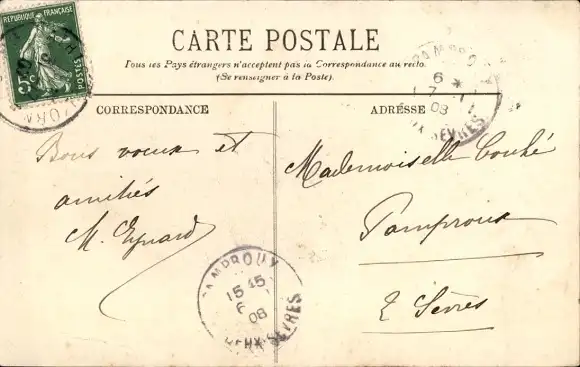 REPUBLIQUE FRANÇAISE
5c
POSTES
CARTE POSTALE
Tous les Pays étrangers n'acceptent pas la Correspondance au recto.
(Se renseigner à la Poste).
PAMPROUX
6 *
7
08
DEUX-SEVRES
CORRESPONDANCE
ADRESSE
Bons voeux et
amitiés
M. Eynard
Mademoiselle
Pamproux
2 Sèvres
PAMPROUX
15 45
6
08
DEUX-SEVRES